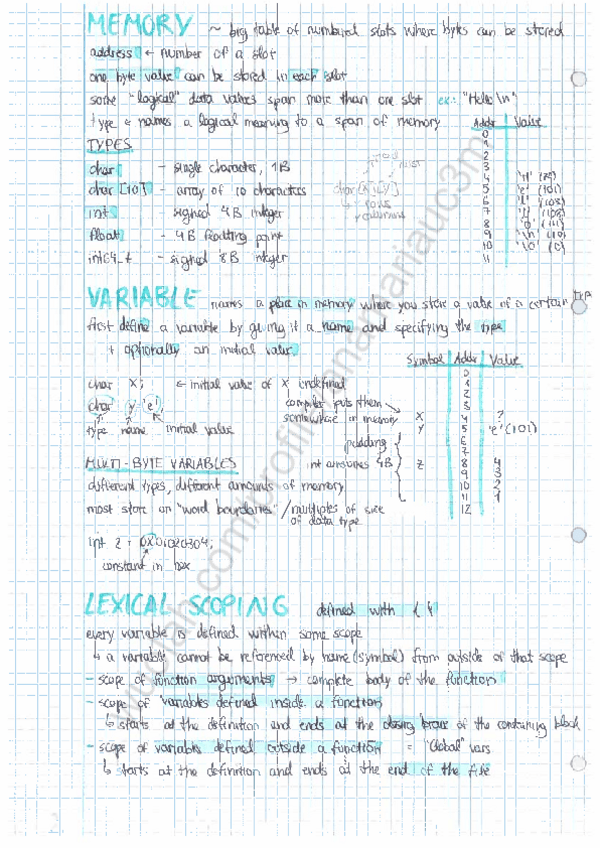 MEMORY ~ big table of numbered slots where bytes can be stored
address ← number of a slot
one byte value can be stored in each slot
some "logical" data values span more than one slot ex.: "Hello\n"
type ← names a logical meaning to a span of memory
Addr Value
0
1
2
3
4 'H' (72)
5 'e' (101)
6 'l' (108)
7 'l' (108)
8 'o' (111)
9 '\n' (10)
10 '\0' (0)
11
TYPES
char - single character, 1B
char [10] - array of 10 characters
char[x][y]
rows
columns
int - signed 4B integer
float - 4B floating point
int64_t - signed 8B integer
VARIABLE names a place in memory where you store a value of a certain type
first define a variable by giving it a name and specifying the type
+ optionally an initial value
Symbol Addr Value
0
1
2
3
X 4 ?
Y 5 'e' (101)
6
7
Z 8 4
9 3
10 2
11 1
12
char x; ← initial value of x undefined
char y 'e';
type name initial value
compiler puts them
somewhere in memory
padding
int consumes 4B
MULTI-BYTE VARIABLES
different types, different amounts of memory
most store on "word boundaries" / multiples of size
of data type
int z = 0x01020304;
constant in hex
LEXICAL SCOPING defined with { }
every variable is defined within some scope
↳ a variable cannot be referenced by name (symbol) from outside of that scope
- scope of function arguments → complete body of the function
- scope of variables defined inside a function
↳ starts at the definition and ends at the closing brace of the containing block
- scope of variables defined outside a function = "Global" vars
↳ starts at the definition and ends at the end of the file